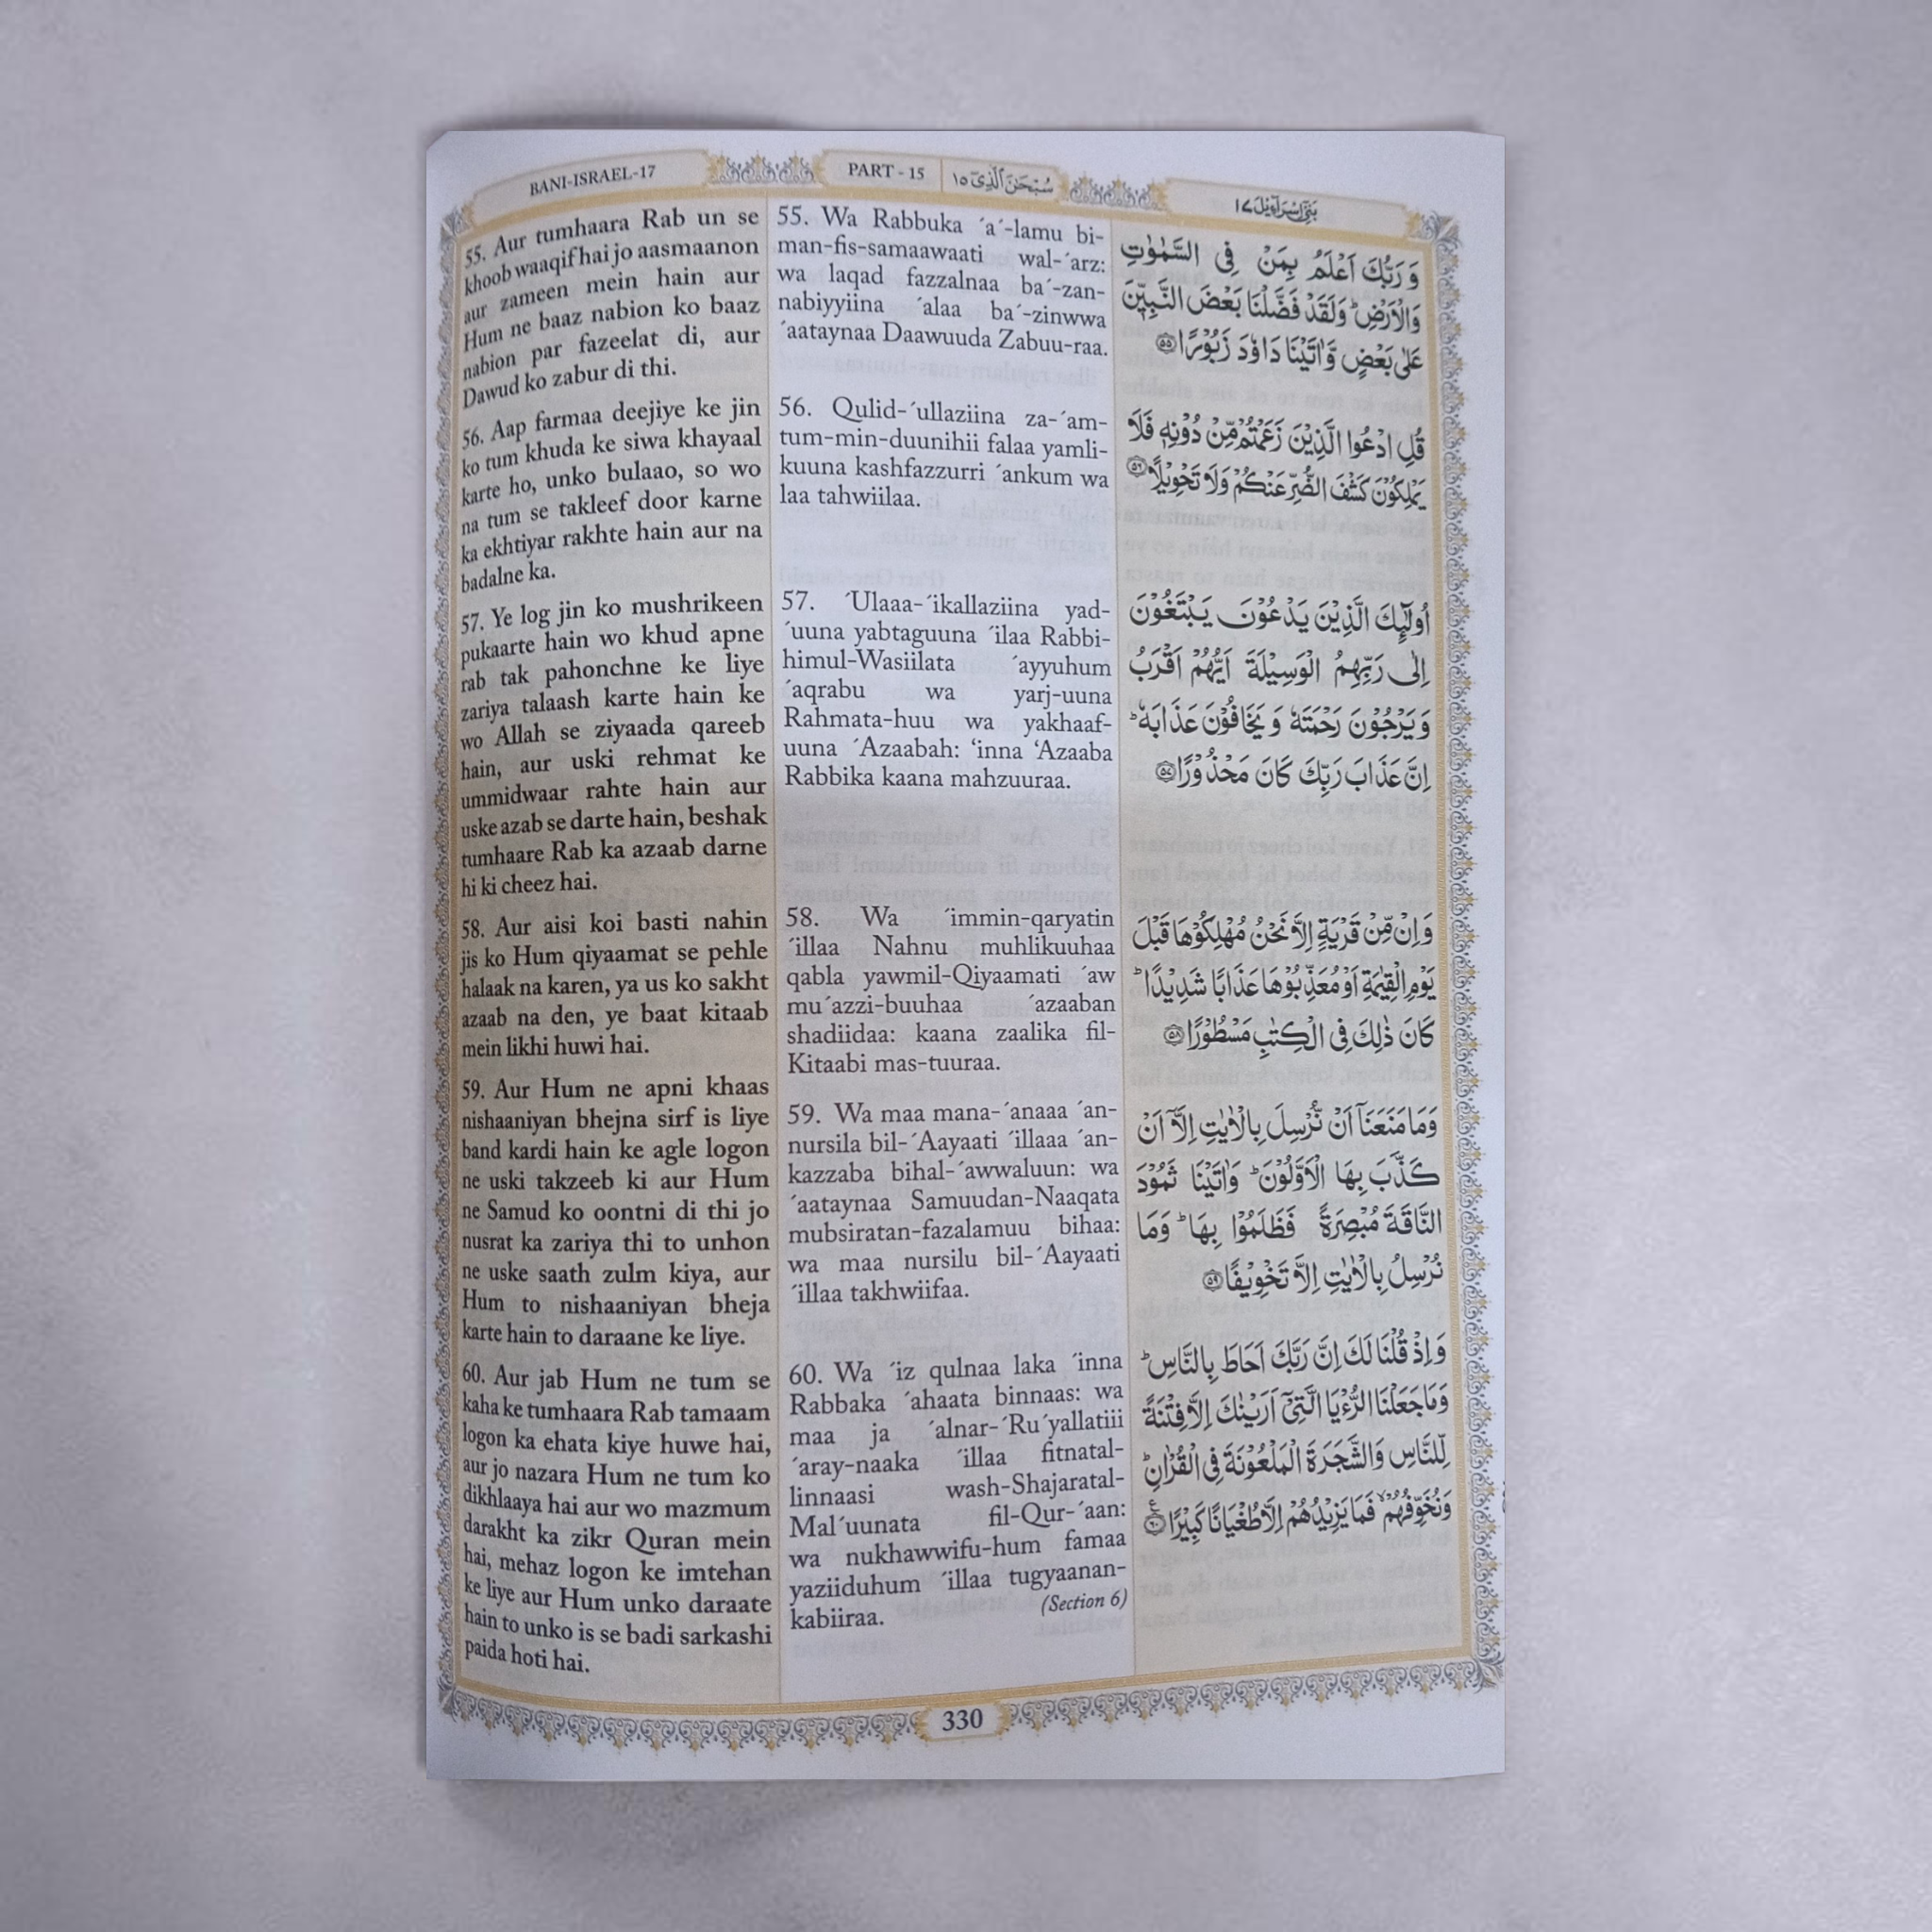 BANI-ISRAEL-17
PART - 15
سُبْحٰنَ الَّذِیْٓ ١٥
بَنِیْٓ اِسْرَآءِیْل ١٧
55. Aur tumhaara Rab un se
khoob waaqif hai jo aasmaanon
aur zameen mein hain aur
Hum ne baaz nabion ko baaz
nabion par fazeelat di, aur
Dawud ko zabur di thi.
56. Aap farmaa deejiye ke jin
ko tum khuda ke siwa khayaal
karte ho, unko bulaao, so wo
na tum se takleef door karne
ka ekhtiyar rakhte hain aur na
badalne ka.
57. Ye log jin ko mushrikeen
pukaarte hain wo khud apne
rab tak pahonchne ke liye
zariya talaash karte hain ke
wo Allah se ziyaada qareeb
hain, aur uski rehmat ke
ummidwaar rahte hain aur
uske azab se darte hain, beshak
tumhaare Rab ka azaab darne
hi ki cheez hai.
58. Aur aisi koi basti nahin
jis ko Hum qiyaamat se pehle
halaak na karen, ya us ko sakht
azaab na den, ye baat kitaab
mein likhi huwi hai.
59. Aur Hum ne apni khaas
nishaaniyan bhejna sirf is liye
band kardi hain ke agle logon
ne uski takzeeb ki aur Hum
ne Samud ko oontni di thi jo
nusrat ka zariya thi to unhon
ne uske saath zulm kiya, aur
Hum to nishaaniyan bheja
karte hain to daraane ke liye.
60. Aur jab Hum ne tum se
kaha ke tumhaara Rab tamaam
logon ka ehata kiye huwe hai,
aur jo nazara Hum ne tum ko
dikhlaaya hai aur wo mazmum
darakht ka zikr Quran mein
hai, mehaz logon ke imtehan
ke liye aur Hum unko daraate
hain to unko is se badi sarkashi
paida hoti hai.
55. Wa Rabbuka ´a´-lamu bi-
man-fis-samaawaati wal-´arz:
wa laqad fazzalnaa ba´-zan-
nabiyyiina ´alaa ba´-zinwwa
´aataynaa Daawuuda Zabuu-raa.
56. Qulid-´ullaziina za-´am-
tum-min-duunihii falaa yamli-
kuuna kashfazzurri ´ankum wa
laa tahwiilaa.
57. ´Ulaaa-´ikallaziina yad-
´uuna yabtaguuna ´ilaa Rabbi-
himul-Wasiilata ´ayyuhum
´aqrabu wa yarj-uuna
Rahmata-huu wa yakhaaf-
uuna ´Azaabah: ‘inna ‘Azaaba
Rabbika kaana mahzuuraa.
58. Wa ´immin-qaryatin
´illaa Nahnu muhlikuuhaa
qabla yawmil-Qiyaamati ´aw
mu´azzi-buuhaa ´azaaban
shadiidaa: kaana zaalika fil-
Kitaabi mas-tuuraa.
59. Wa maa mana-´anaaa ´an-
nursila bil-´Aayaati ´illaaa ´an-
kazzaba bihal-´awwaluun: wa
´aataynaa Samuudan-Naaqata
mubsiratan-fazalamuu bihaa:
wa maa nursilu bil-´Aayaati
´illaa takhwiifaa.
60. Wa ´iz qulnaa laka ´inna
Rabbaka ´ahaata binnaas: wa
maa ja ´alnar-´Ru´yallatiii
´aray-naaka ´illaa fitnatal-
linnaasi wash-Shajaratal-
Mal´uunata fil-Qur-´aan:
wa nukhawwifu-hum famaa
yaziiduhum ´illaa tugyaanan-
kabiiraa. (Section 6)
وَ رَبُّكَ اَعْلَمُ بِمَنْ فِی السَّمٰوٰتِ
وَالْاَرْضِ ؕ وَلَقَدْ فَضَّلْنَا بَعْضَ النَّبِیّٖنَ
عَلٰی بَعْضٍ وَّاٰتَیْنَا دَاوٗدَ زَبُوْرًا ۝٥٥
قُلِ ادْعُوا الَّذِیْنَ زَعَمْتُمْ مِّنْ دُوْنِهٖ فَلَا
یَمْلِكُوْنَ كَشْفَ الضُّرِّ عَنْكُمْ وَلَا تَحْوِیْلًا ۝٥٦
اُولٰٓئِكَ الَّذِیْنَ یَدْعُوْنَ یَبْتَغُوْنَ
اِلٰی رَبِّهِمُ الْوَسِیْلَةَ اَیُّهُمْ اَقْرَبُ
وَ یَرْجُوْنَ رَحْمَتَهٗ وَ یَخَافُوْنَ عَذَابَهٗ ؕ
اِنَّ عَذَابَ رَبِّكَ كَانَ مَحْذُوْرًا ۝٥٧
وَ اِنْ مِّنْ قَرْیَةٍ اِلَّا نَحْنُ مُهْلِكُوْهَا قَبْلَ
یَوْمِ الْقِیٰمَةِ اَوْ مُعَذِّبُوْهَا عَذَابًا شَدِیْدًا ؕ
كَانَ ذٰلِكَ فِی الْكِتٰبِ مَسْطُوْرًا ۝٥٨
وَمَا مَنَعَنَاۤ اَنْ نُّرْسِلَ بِالْاٰیٰتِ اِلَّاۤ اَنْ
كَذَّبَ بِهَا الْاَوَّلُوْنَ ؕ وَاٰتَیْنَا ثَمُوْدَ
النَّاقَةَ مُبْصِرَةً فَظَلَمُوْا بِهَا ؕ وَمَا
نُرْسِلُ بِالْاٰیٰتِ اِلَّا تَخْوِیْفًا ۝٥٩
وَ اِذْ قُلْنَا لَكَ اِنَّ رَبَّكَ اَحَاطَ بِالنَّاسِ ؕ
وَمَا جَعَلْنَا الرُّءْیَا الَّتِیْۤ اَرَیْنٰكَ اِلَّا فِتْنَةً
لِّلنَّاسِ وَالشَّجَرَةَ الْمَلْعُوْنَةَ فِی الْقُرْاٰنِ ؕ
وَنُخَوِّفُهُمْ ۙ فَمَا یَزِیْدُهُمْ اِلَّا طُغْیَانًا كَبِیْرًا ۝٦٠ ع
330